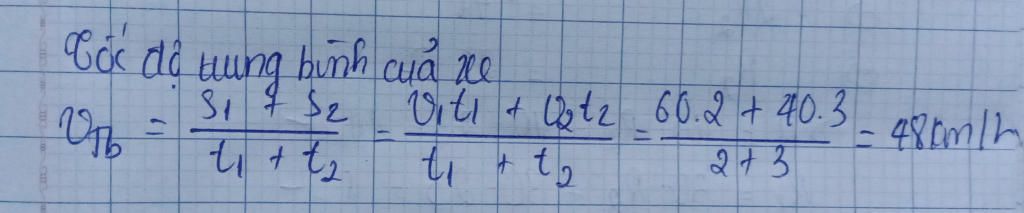 Tốc độ trung bình của xe
v_Tb = (s₁ + s₂)/(t₁ + t₂) = (v₁t₁ + v₂t₂)/(t₁ + t₂) = (60.2 + 40.3)/(2+3) = 48km/h